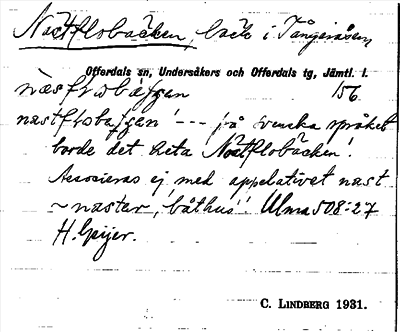 Nästflobäcken, bäck i Tångeråsen
Offerdals sn, Undersåkers och Offerdals tg, Jämtl. l.
156.
--- på svenska språket
borde det heta Nästflobäcken!
Associeras ej med appelativet nast
~ nastar, båthus! Ulma 508:27
H. Geijer.
C. LINDBERG 1931.